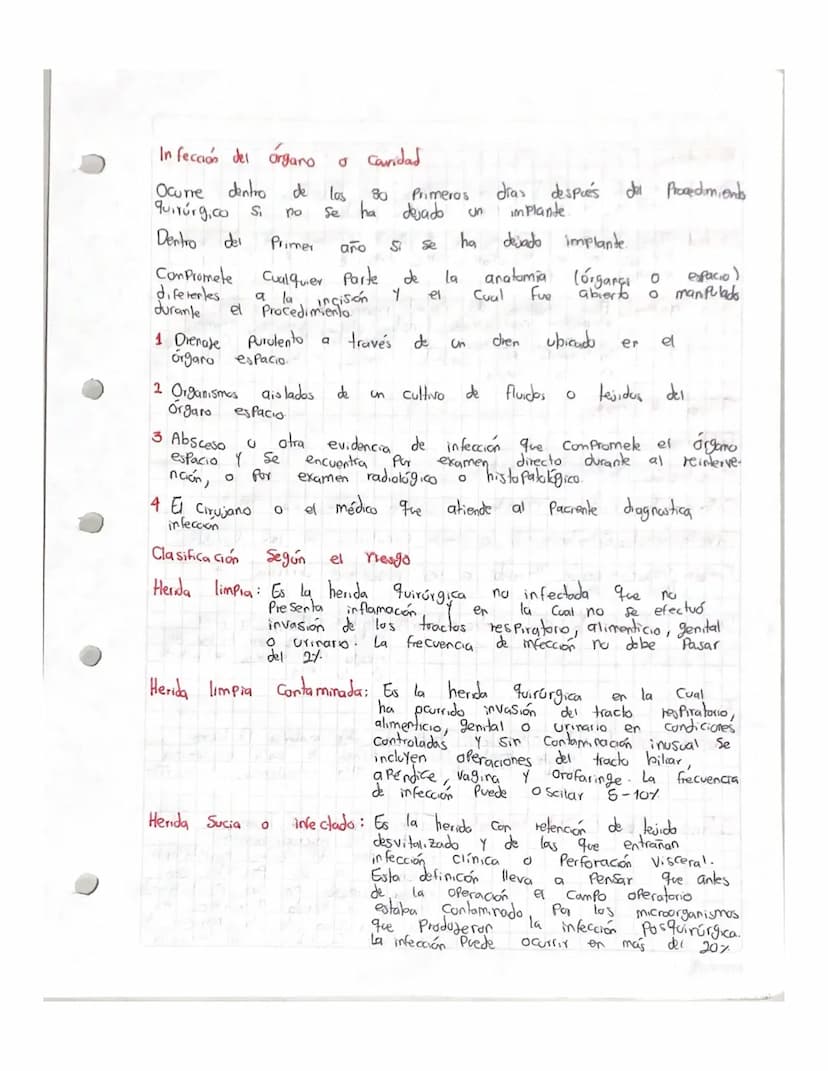 Infección del órgano o Cavidad
Ocurre dentro de los 30 Primeros días después del Procedimiento
quirúrgico si no se ha dejado un implante.
Dentro del Primer año si se ha dejado implante.
Compromete Cualquier Parte de la anatomía (órganos o espacio)
diferentes a la incisión y el Cual fue abierto o manipulado
durante el Procedimiento.
1 Drenaje Purulento a través de un dren ubicado en el
órgano espacio.
2 Organismos aislados de un cultivo de fluidos o tejidos del
órgano espacio
3 Absceso u otra evidencia de infección que Compromete el órgano
espacio y se encuentra Por examen directo durante al reinterve-
nción, o Por examen radiológico o histopatológico.
4 El Cirujano o el médico que atiende al Paciente diagnostica
infección
Clasificación Según el riesgo
Herida limpia: Es la herida quirúrgica no infectada que no
Presenta inflamación y en la Cual no se efectuó
invasión de los tractos respiratorio, alimenticio, genital
o urinario. La frecuencia de infección no debe Pasar
del 2%
Herida limpia Contaminada: Es la herida quirúrgica en la Cual
ha ocurrido invasión del tracto respiratorio,
alimenticio, genital o urinario en Condiciones
Controladas y sin Contaminación inusual Se
incluyen operaciones del tracto biliar,
apéndice, vagina y orofaringe. La frecuencia
de infección Puede Oscilar 5-10%
Herida Sucia o infectado: Es la herida con retención de tejido
desvitalizado y de las que entrañan
infección Clínica o Perforación Visceral.
Esta definición lleva a Pensar que antes
de la operación el Campo operatorio
estaba Contaminado Por los microorganismos
que Produjeron la infección Posquirúrgica.
La infección Puede ocurrir en más del 20%